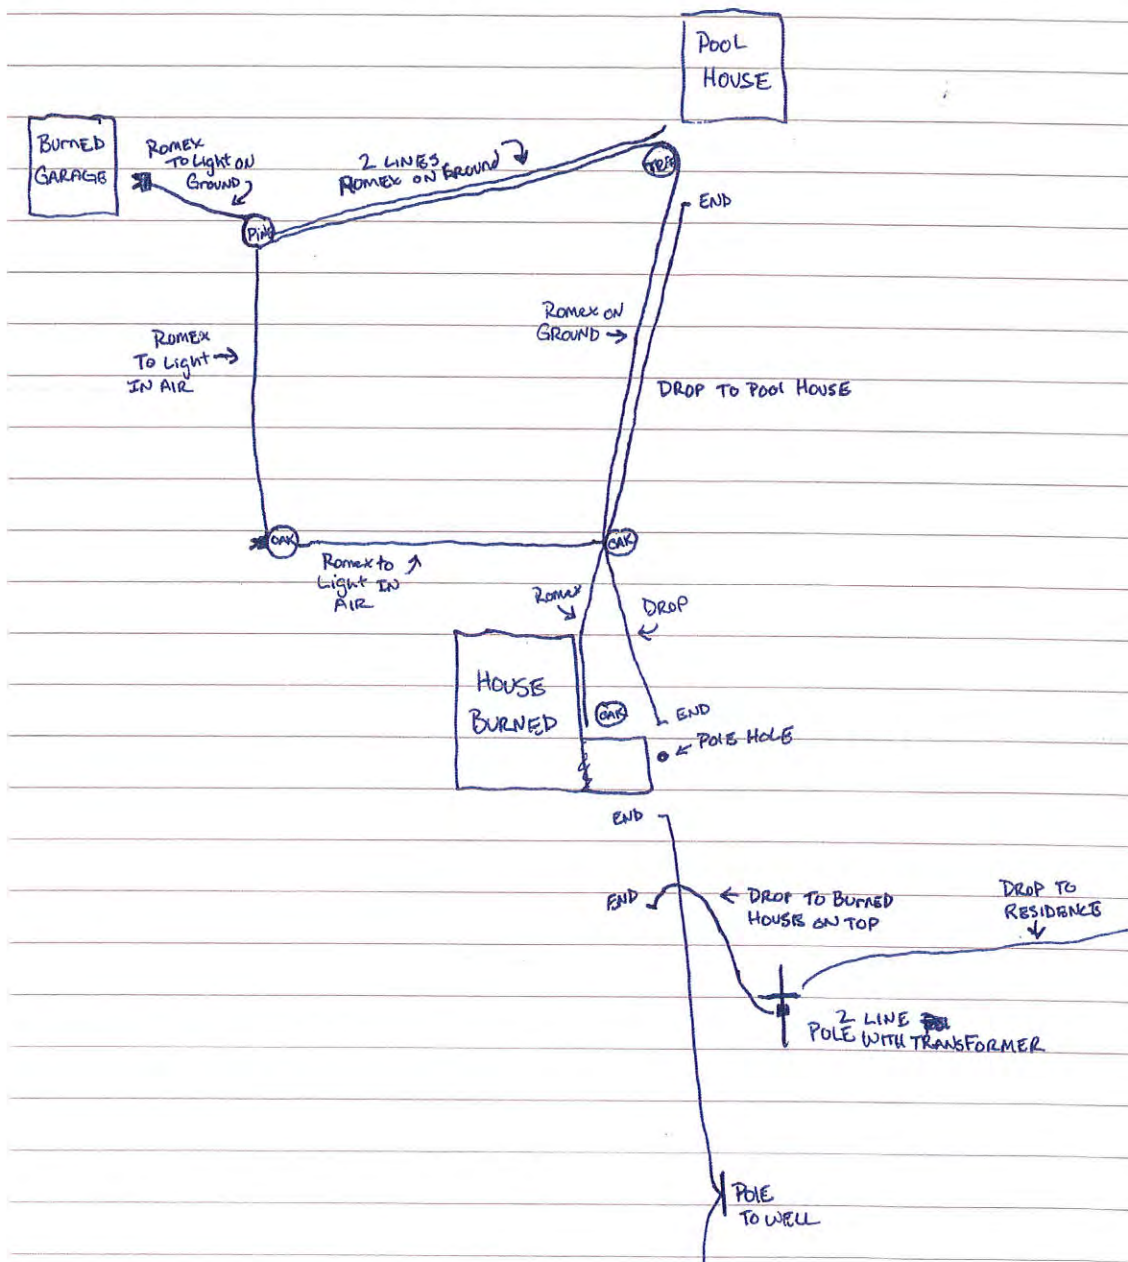 POOL
HOUSE
BURNED
GARAGE
ROMEX
TO Light ON
GROUND
2 LINES
ROMEX ON GROUND
TREE
END
PINE
ROMEX ON
GROUND
ROMEX
TO Light
IN AIR
DROP TO POOL HOUSE
OAK
OAK
Romex to
Light IN
AIR
Romex
DROP
HOUSE
BURNED
OAK
END
POLE HOLE
END
END
DROP TO BURNED
HOUSE ON TOP
DROP TO
RESIDENCE
2 LINE
POLE WITH TRANSFORMER
POLE
TO WELL